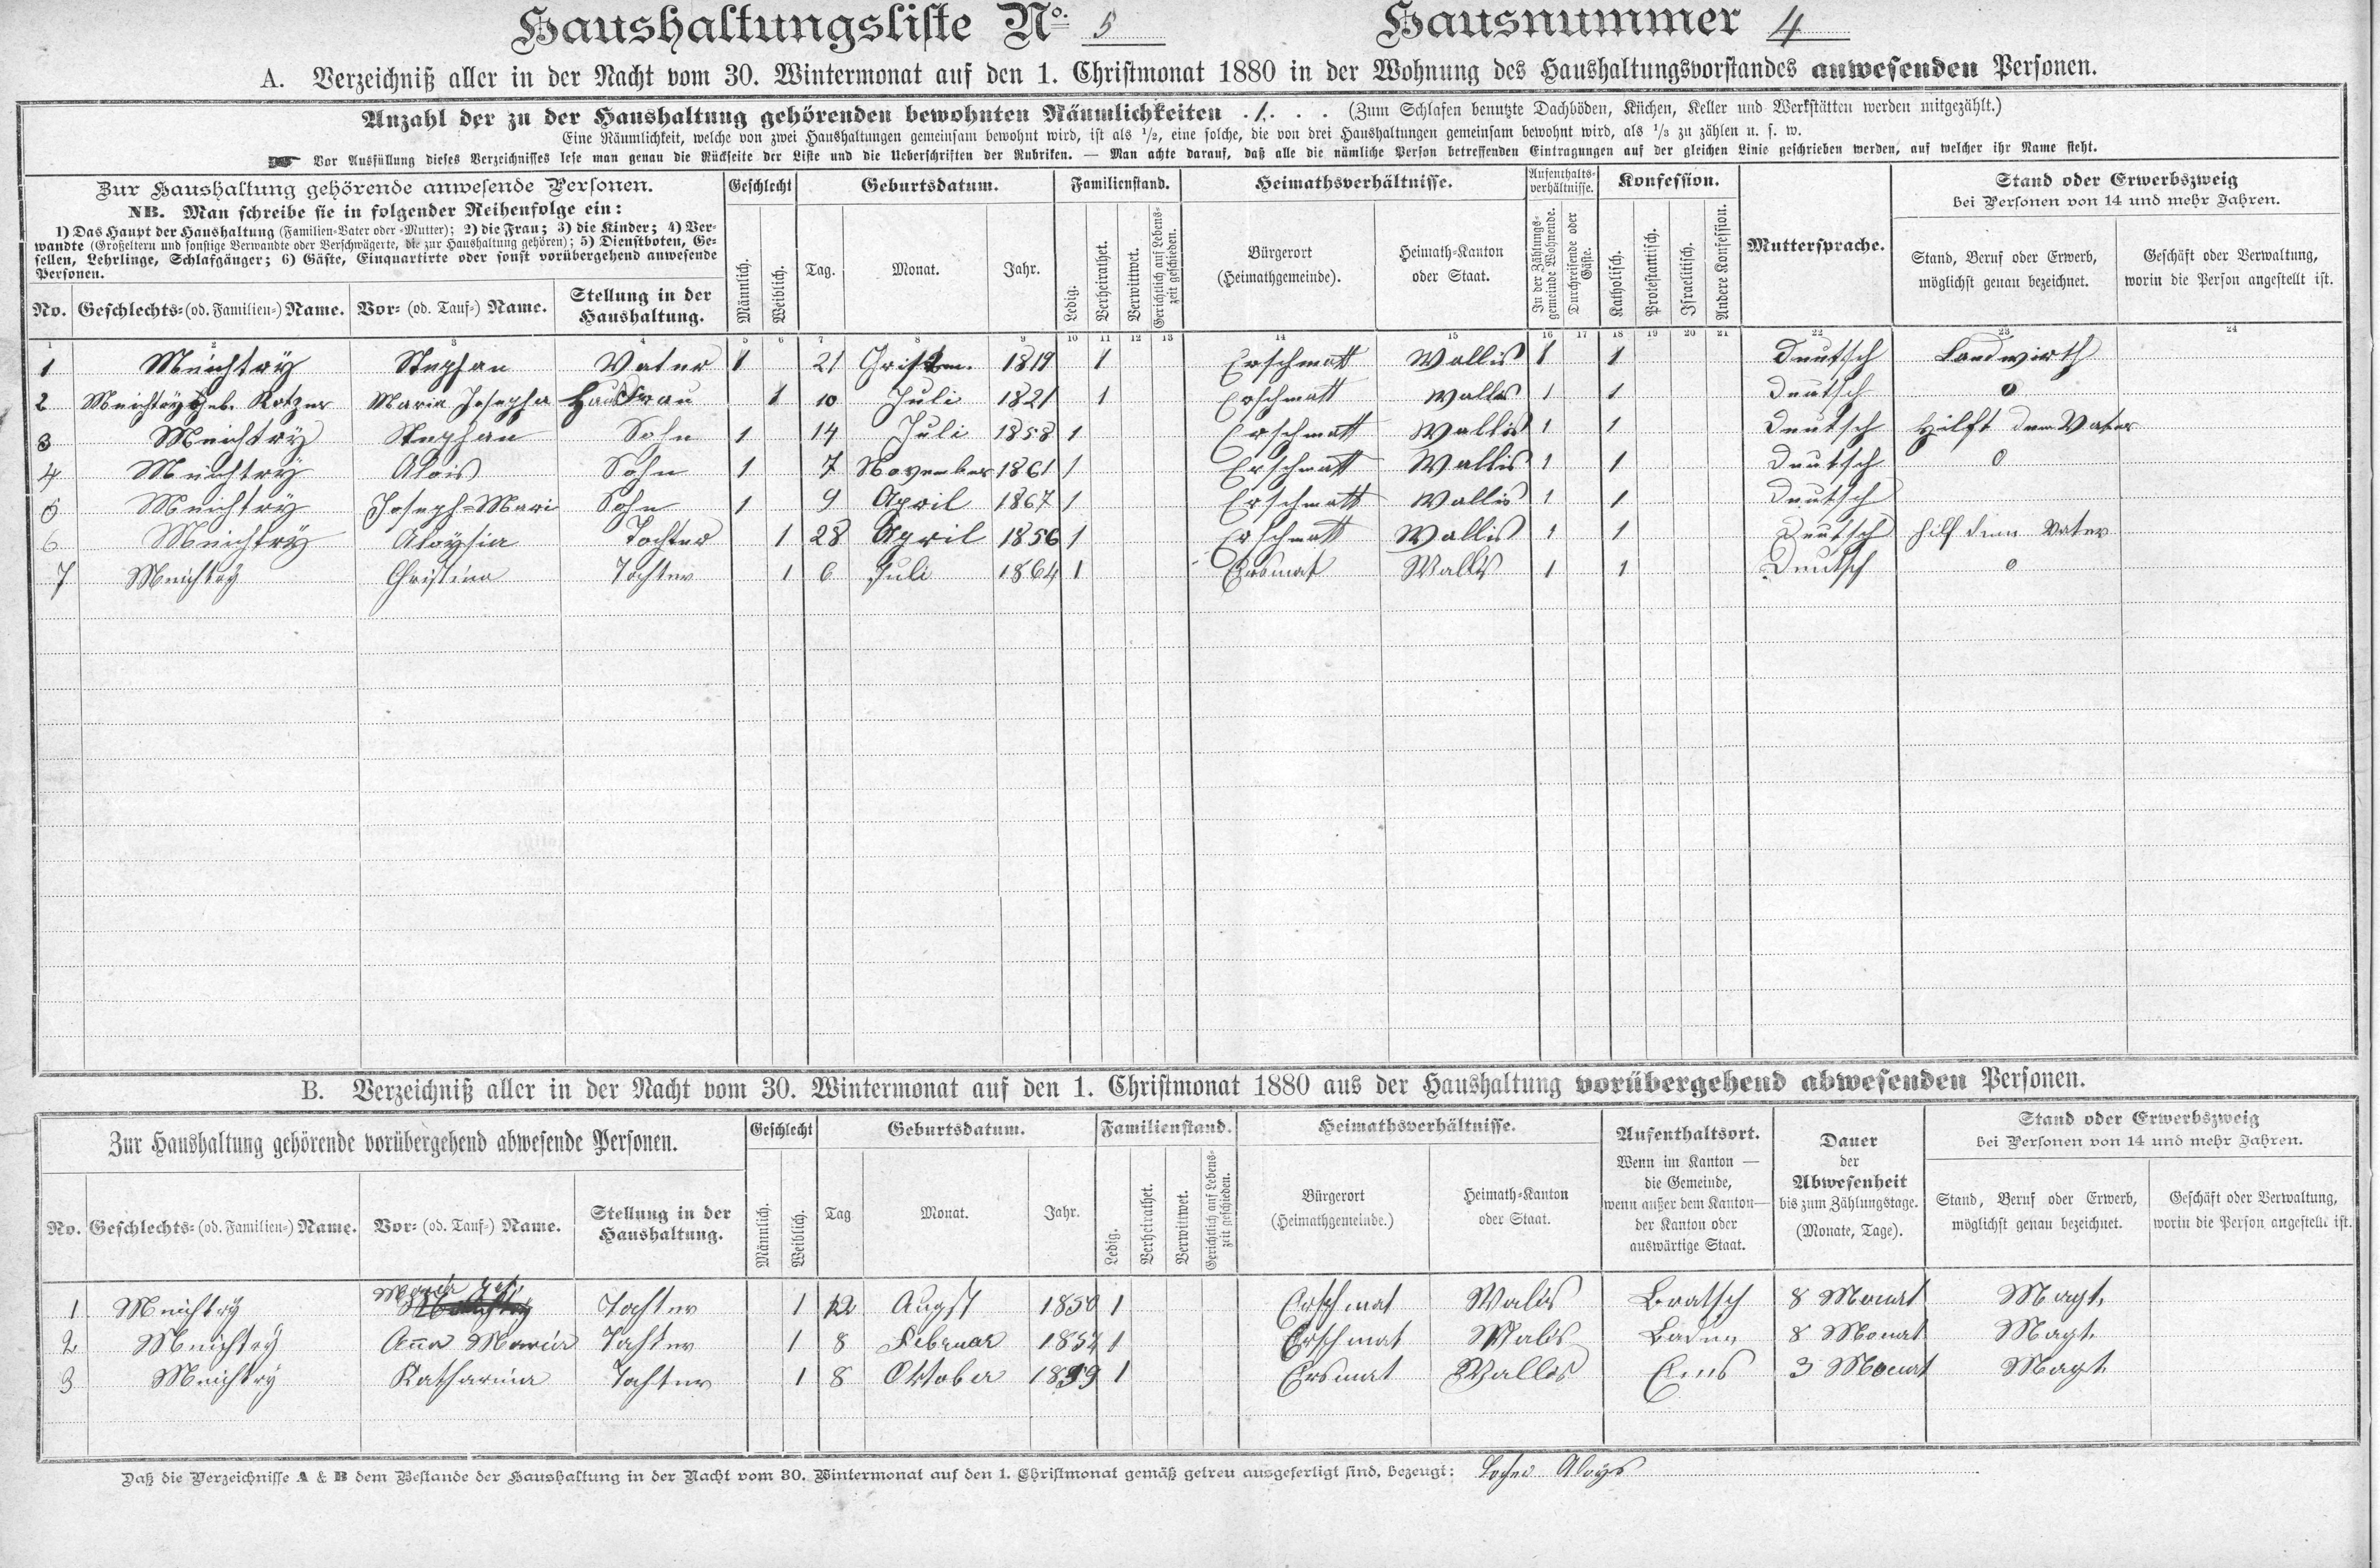 Haushaltungsliste No. 5 Hausnummer 4
A. Verzeichniß aller in der Nacht vom 30. Wintermonat auf den 1. Christmonat 1880 in der Wohnung des Haushaltungsvorstandes anwesenden Personen.
Anzahl der zu der Haushaltung gehörenden bewohnten Räumlichkeiten . 1. . . (Zum Schlafen benutzte Dachböden, Küchen, Keller und Werkstätten werden mitgezählt.)
Eine Räumlichkeit, welche von zwei Haushaltungen gemeinsam bewohnt wird, ist als 1/2, eine solche, die von drei Haushaltungen gemeinsam bewohnt wird, als 1/3 zu zählen u. s. w.
☛ Vor Ausfüllung dieses Verzeichnisses lese man genau die Rückseite der Liste und die Ueberschriften der Rubriken. — Man achte darauf, daß alle die nämliche Person betreffenden Eintragungen auf der gleichen Linie geschrieben werden, auf welcher ihr Name steht.
Zur Haushaltung gehörende anwesende Personen.
NB. Man schreibe sie in folgender Reihenfolge ein:
1) Das Haupt der Haushaltung (Familien-Vater oder -Mutter); 2) die Frau; 3) die Kinder; 4) Ver-
wandte (Großeltern und sonstige Verwandte oder Verschwägerte, die zur Haushaltung gehören); 5) Dienstboten, Ge-
sellen, Lehrlinge, Schlafgänger; 6) Gäste, Einquartirte oder sonst vorübergehend anwesende
Personen.
No. Geschlechts- (od. Familien-) Name. Vor- (od. Tauf-) Name. Stellung in der Haushaltung.
Geschlecht
Männlich. Weiblich.
Geburtsdatum.
Tag. Monat. Jahr.
Familienstand.
Ledig. Verheirathet. Verwittwet. Gerichtlich auf Lebens-
zeit geschieden.
Heimathsverhältnisse.
Bürgerort
(Heimathgemeinde).
Heimath-Kanton
oder Staat.
Aufenthalts-
verhältnisse.
In der Zählungs-
gemeinde Wohnende.
Durchreisende oder
Gäste.
Konfession.
Katholisch. Protestantisch. Israelitisch. Andere Konfession.
Muttersprache.
Stand oder Erwerbszweig
bei Personen von 14 und mehr Jahren.
Stand, Beruf oder Erwerb,
möglichst genau bezeichnet.
Geschäft oder Verwaltung,
worin die Person angestellt ist.
1 2 3 4 5 6 7 8 9 10 11 12 13 14 15 16 17 18 19 20 21 22 23 24
1 Meichtrÿ Stephan Vater 1 21 Christm. 1819 1 Erschmatt Wallis 1 1 Deutsch Landwirth
2 Meichtrÿ geb. Kotzer Maria Josepha Hausfrau 1 10 Juli 1821 1 Erschmatt Wallis 1 1 Deutsch 0
3 Meichtrÿ Stephan Sohn 1 14 Juli 1858 1 Erschmatt Wallis 1 1 Deutsch Hilft dem Vater
4 Meichtrÿ Alois Sohn 1 7 November 1861 1 Erschmatt Wallis 1 1 Deutsch 0
5 Meichtrÿ Joseph=Mari Sohn 1 9 April 1867 1 Erschmatt Wallis 1 1 Deutsch
6 Meichtrÿ Aloÿsia Tochter 1 28 April 1856 1 Erschmatt Wallis 1 1 Deutsch hilf dem Vater
7 Meichtrÿ Christina Tochter 1 6 Juli 1864 1 Ersmat Wallis 1 1 Deutsch 0
B. Verzeichniß aller in der Nacht vom 30. Wintermonat auf den 1. Christmonat 1880 aus der Haushaltung vorübergehend abwesenden Personen.
Zur Haushaltung gehörende vorübergehend abwesende Personen.
No. Geschlechts- (od. Familien-) Name. Vor- (od. Tauf-) Name. Stellung in der Haushaltung.
Geschlecht
Männlich. Weiblich.
Geburtsdatum.
Tag Monat. Jahr.
Familienstand.
Ledig. Verheirathet. Verwittwet. Gerichtlich auf Lebens-
zeit geschieden.
Heimathsverhältnisse.
Bürgerort
(Heimathgemeinde.)
Heimath-Kanton
oder Staat.
Aufenthaltsort.
Wenn im Kanton —
die Gemeinde,
wenn außer dem Kanton —
der Kanton oder
auswärtige Staat.
Dauer
der
Abwesenheit
bis zum Zählungstage.
(Monate, Tage).
Stand oder Erwerbszweig
bei Personen von 14 und mehr Jahren.
Stand, Beruf oder Erwerb,
möglichst genau bezeichnet.
Geschäft oder Verwaltung,
worin die Person angestellt ist.
1 Meichtrÿ Maria Tochter 1 12 Augst 1850 1 Erschmat Walis Bratsch 8 Monat Magt.
2 Meichtrÿ Ana Maria Tochter 1 8 Februar 1854 1 Erschmat Walis Baden 8 Monat Magt.
3 Meichtrÿ Katharina Tochter 1 8 Oktober 1859 1 Ersmat Wallis Ems 3 Monat Magt
Daß die Verzeichnisse A & B dem Bestande der Haushaltung in der Nacht vom 30. Wintermonat auf den 1. Christmonat gemäß getreu ausgefertigt sind, bezeugt: Locher Aloys